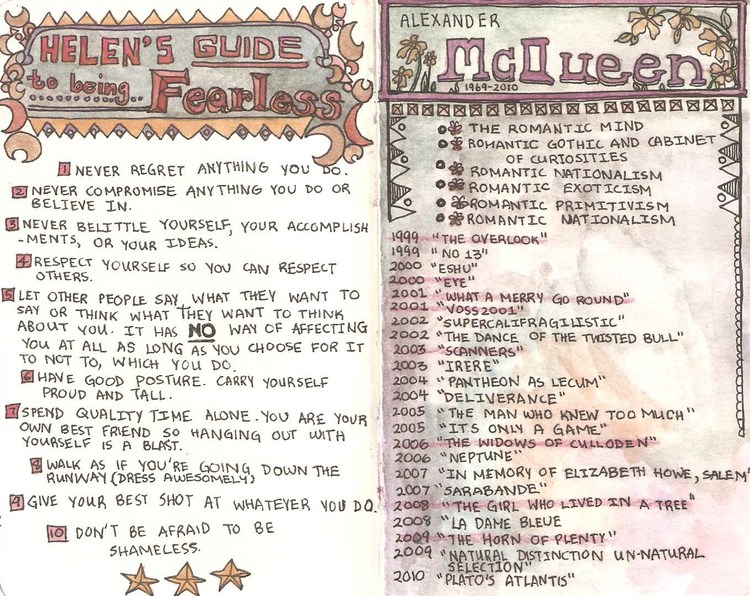 HELEN'S GUIDE
to being..
Fearless
1 NEVER REGRET ANYTHING YOU DO.
2 NEVER COMPROMISE ANYTHING YOU DO OR
BELIEVE IN.
3 NEVER BELITTLE YOURSELF, YOUR ACCOMPLISH
-MENTS, OR YOUR IDEAS.
4 RESPECT YOURSELF SO YOU CAN RESPECT
OTHERS.
5 LET OTHER PEOPLE SAY WHAT THEY WANT TO
SAY OR THINK WHAT THEY WANT TO THINK
ABOUT YOU. IT HAS NO WAY OF AFFECTING
YOU AT ALL AS LONG AS YOU CHOOSE FOR IT
TO NOT TO, WHICH YOU DO.
6 HAVE GOOD POSTURE. CARRY YOURSELF
PROUD AND TALL.
7 SPEND QUALITY TIME ALONE. YOU ARE YOUR
OWN BEST FRIEND SO HANGING OUT WITH
YOURSELF IS A BLAST.
8 WALK AS IF YOU'RE GOING DOWN THE
RUNWAY (DRESS AWESOMELY)
9 GIVE YOUR BEST SHOT AT WHATEVER YOU DO.
10 DON'T BE AFRAID TO BE
SHAMELESS.
ALEXANDER
McQueen
1969-2010
THE ROMANTIC MIND
ROMANTIC GOTHIC AND CABINET
OF CURIOSITIES
ROMANTIC NATIONALISM
ROMANTIC EXOTICISM
ROMANTIC PRIMITIVISM
ROMANTIC NATIONALISM
1999 "THE OVERLOOK"
1999 "NO 13"
2000 "ESHU"
2000 "EYE"
2001 "WHAT A MERRY GO ROUND"
2001 "VOSS 2001"
2002 "SUPERCALIFRAGILISTIC"
2002 "THE DANCE OF THE TWISTED BULL"
2003 "SCANNERS"
2003 "IRERE"
2004 "PANTHEON AS LECUM"
2004 "DELIVERANCE"
2005 "THE MAN WHO KNEW TOO MUCH"
2005 "ITS ONLY A GAME"
2006 "THE WIDOWS OF CULLODEN"
2006 "NEPTUNE"
2007 "IN MEMORY OF ELIZABETH HOWE, SALEM"
2007 "SARABANDE"
2008 "THE GIRL WHO LIVED IN A TREE"
2008 "LA DAME BLEUE
2009 "THE HORN OF PLENTY"
2009 "NATURAL DISTINCTION UN-NATURAL
SELECTION"
2010 "PLATO'S ATLANTIS"